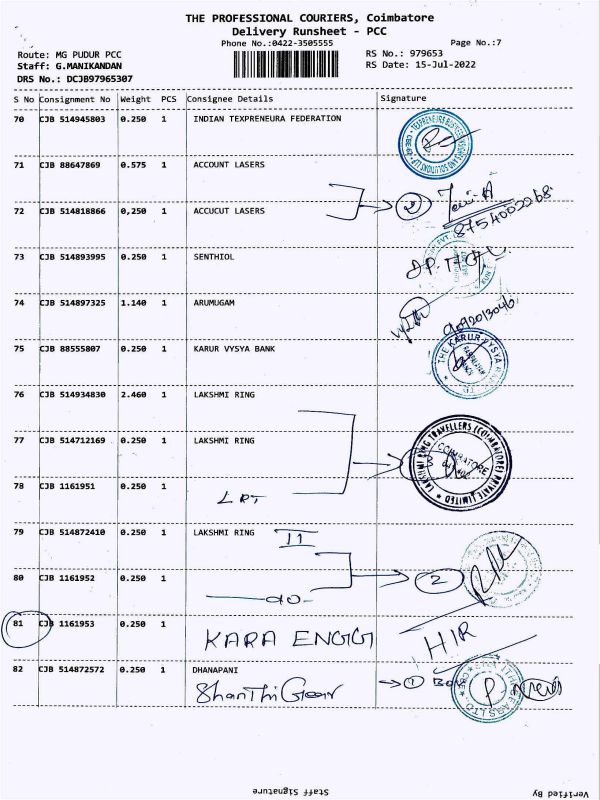 THE PROFESSIONAL COURIERS, Coimbatore
Delivery Runsheet - PCC
Phone No.:0422-3505555
Page No.:7
Route: MG PUDUR PCC
RS No.: 979653
Staff: G.MANIKANDAN
RS Date: 15-Jul-2022
DRS No.: DCJB97965307
S No Consignment No Weight PCS Consignee Details Signature
70 CJB 514945803 0.250 1 INDIAN TEXPRENEURA FEDERATION
71 CJB 88647869 0.575 1 ACCOUNT LASERS
2
72 CJB 514818866 0,250 1 ACCUCUT LASERS
8754002268
73 CJB 514893995 0.250 1 SENTHIOL
74 CJB 514897325 1.140 1 ARUMUGAM
9092013046
75 CJB 88555807 0.250 1 KARUR VYSYA BANK
THE KARUR VYSYA
76 CJB 514934830 2.460 1 LAKSHMI RING
77 CJB 514712169 0.250 1 LAKSHMI RING
LAKSHMI RING TRAVELLERS (COIMBATORE) PRIVATE LIMITED
COIMBATORE
3
78 CJB 1161951 0.250 1
LRT
79 CJB 514872410 0.250 1 LAKSHMI RING 11
80 CJB 1161952 0.250 1
2
do
81 CJB 1161953 0.250 1 KARA ENGG
HIR
82 CJB 514872572 0.250 1 DHANAPANI
Shanthi Gear
1 Box
Staff Signature
Verified By